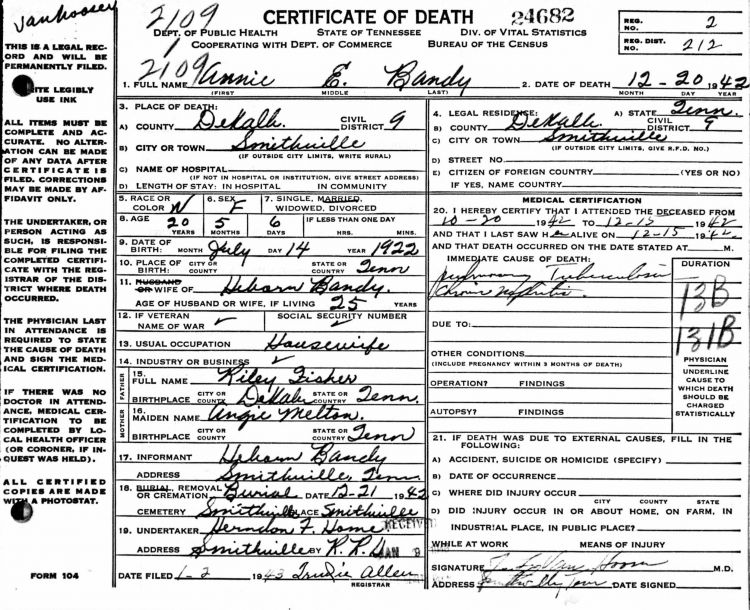 Vanhoosen
2109
CERTIFICATE OF DEATH 24682
DEPT. OF PUBLIC HEALTH STATE OF TENNESSEE DIV. OF VITAL STATISTICS
COOPERATING WITH DEPT. OF COMMERCE BUREAU OF THE CENSUS
REG. NO. 2
REG. DIST. 212
THIS IS A LEGAL RECORD AND WILL BE PERMANENTLY FILED.
WRITE LEGIBLY
USE INK
ALL ITEMS MUST BE COMPLETE AND ACCURATE. NO ALTERATION CAN BE MADE OF ANY DATA AFTER CERTIFICATE IS FILED. CORRECTIONS MAY BE MADE BY AFFIDAVIT ONLY.
THE UNDERTAKER, OR PERSON ACTING AS SUCH, IS RESPONSIBLE FOR FILING THE COMPLETED CERTIFICATE WITH THE REGISTRAR OF THE DISTRICT WHERE DEATH OCCURRED.
THE PHYSICIAN LAST IN ATTENDANCE IS REQUIRED TO STATE THE CAUSE OF DEATH AND SIGN THE MEDICAL CERTIFICATION.
IF THERE WAS NO DOCTOR IN ATTENDANCE, MEDICAL CERTIFICATION TO BE COMPLETED BY LOCAL HEALTH OFFICER (OR CORONER, IF INQUEST WAS HELD).
ALL CERTIFIED COPIES ARE MADE WITH A PHOTOSTAT.
FORM 104
2109
1. FULL NAME Annie E. Bandy
(FIRST) MIDDLE (LAST)
2. DATE OF DEATH 12-20 1942
MONTH DAY YEAR
3. PLACE OF DEATH:
A) COUNTY DeKalb CIVIL DISTRICT 9
B) CITY OR TOWN Smithville
(IF OUTSIDE CITY LIMITS, WRITE RURAL)
C) NAME OF HOSPITAL
(IF NOT IN HOSPITAL OR INSTITUTION, GIVE STREET ADDRESS)
D) LENGTH OF STAY: IN HOSPITAL IN COMMUNITY
4. LEGAL RESIDENCE: A) STATE Tenn.
B) COUNTY DeKalb CIVIL DISTRICT 9
C) CITY OR TOWN Smithville
(IF OUTSIDE CITY LIMITS, GIVE R.F.D. NO.)
D) STREET NO.
E) CITIZEN OF FOREIGN COUNTRY (YES OR NO)
IF YES, NAME COUNTRY
5. RACE OR COLOR W 6. SEX F 7. SINGLE, MARRIED, WIDOWED, DIVORCED
8. AGE 20 5 6 IF LESS THAN ONE DAY
YEARS MONTHS DAYS HRS. MINS.
9. DATE OF BIRTH: MONTH July DAY 14 YEAR 1922
10. PLACE OF BIRTH: CITY OR COUNTY STATE OR COUNTRY Tenn
11. HUSBAND OR WIFE OF Heborn Bandy.
AGE OF HUSBAND OR WIFE, IF LIVING 25 YEARS
12. IF VETERAN NAME OF WAR SOCIAL SECURITY NUMBER
13. USUAL OCCUPATION Housewife
14. INDUSTRY OR BUSINESS
FATHER
15. FULL NAME Riley Fisher
BIRTHPLACE CITY OR COUNTY DeKalb STATE OR COUNTRY Tenn.
MOTHER
16. MAIDEN NAME Angie Melton
BIRTHPLACE CITY OR COUNTY STATE OR COUNTRY Tenn
17. INFORMANT Heborn Bandy
ADDRESS Smithville, Tenn.
18. BURIAL, REMOVAL OR CREMATION Burial DATE 12-21 1942
CEMETERY Smithville PLACE Smithville
19. UNDERTAKER Herndon F. Home
ADDRESS Smithville BY
RECEIVED
JAN
DATE FILED 1-2 1943 Trudie Allen
REGISTRAR
MEDICAL CERTIFICATION
20. I HEREBY CERTIFY THAT I ATTENDED THE DECEASED FROM
10-20 1942 TO 12-15 1942
AND THAT I LAST SAW H ALIVE ON 12-15 1942,
AND THAT DEATH OCCURRED ON THE DATE STATED AT M.
IMMEDIATE CAUSE OF DEATH: DURATION
Pulmonary Tuberculosis
Nephritis 13B
DUE TO: 131B
OTHER CONDITIONS
(INCLUDE PREGNANCY WITHIN 3 MONTHS OF DEATH)
OPERATION? FINDINGS
AUTOPSY? FINDINGS
PHYSICIAN
UNDERLINE CAUSE TO WHICH DEATH SHOULD BE CHARGED STATISTICALLY
21. IF DEATH WAS DUE TO EXTERNAL CAUSES, FILL IN THE FOLLOWING:
A) ACCIDENT, SUICIDE OR HOMICIDE (SPECIFY)
B) DATE OF OCCURRENCE
C) WHERE DID INJURY OCCUR
CITY COUNTY STATE
D) DID INJURY OCCUR IN OR ABOUT HOME, ON FARM, IN
INDUSTRIAL PLACE, IN PUBLIC PLACE?
WHILE AT WORK MEANS OF INJURY
SIGNATURE M.D.
ADDRESS DATE SIGNED